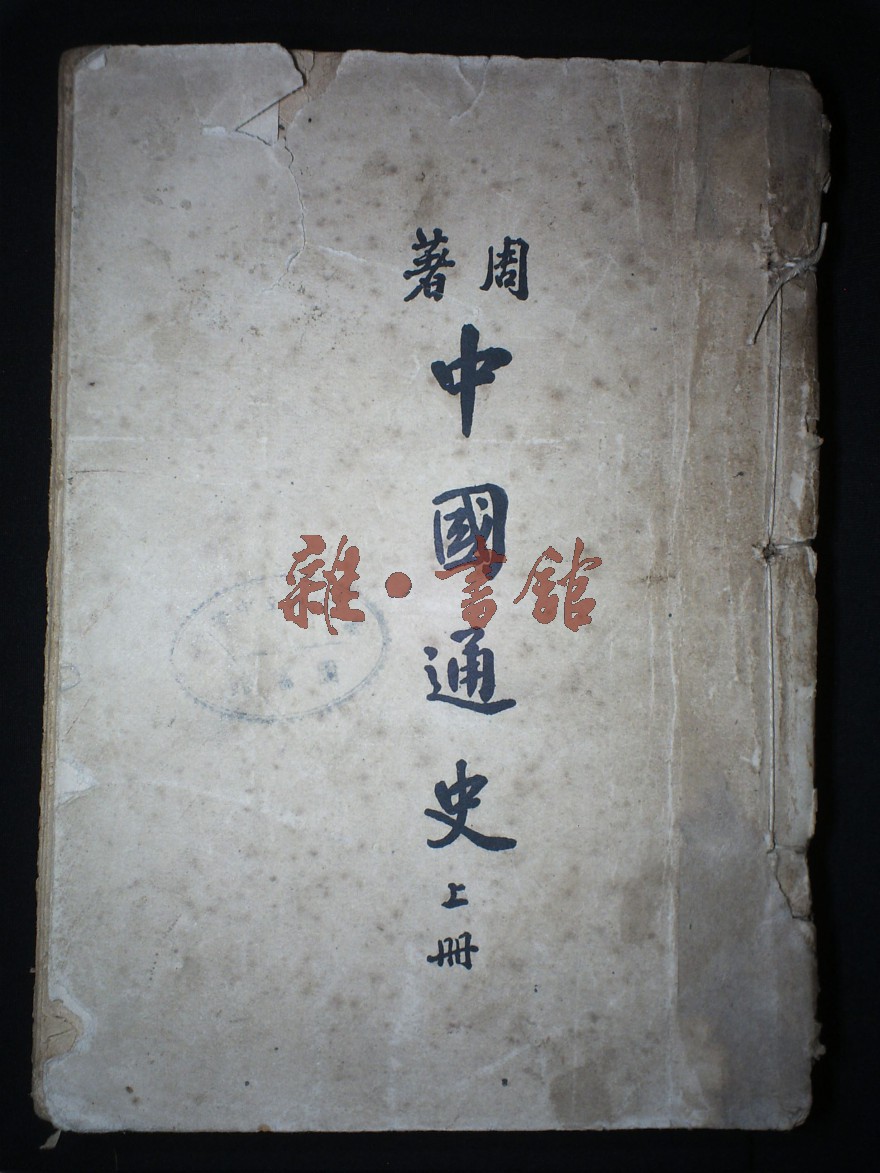 周著
中國通史
上冊
雜·書館